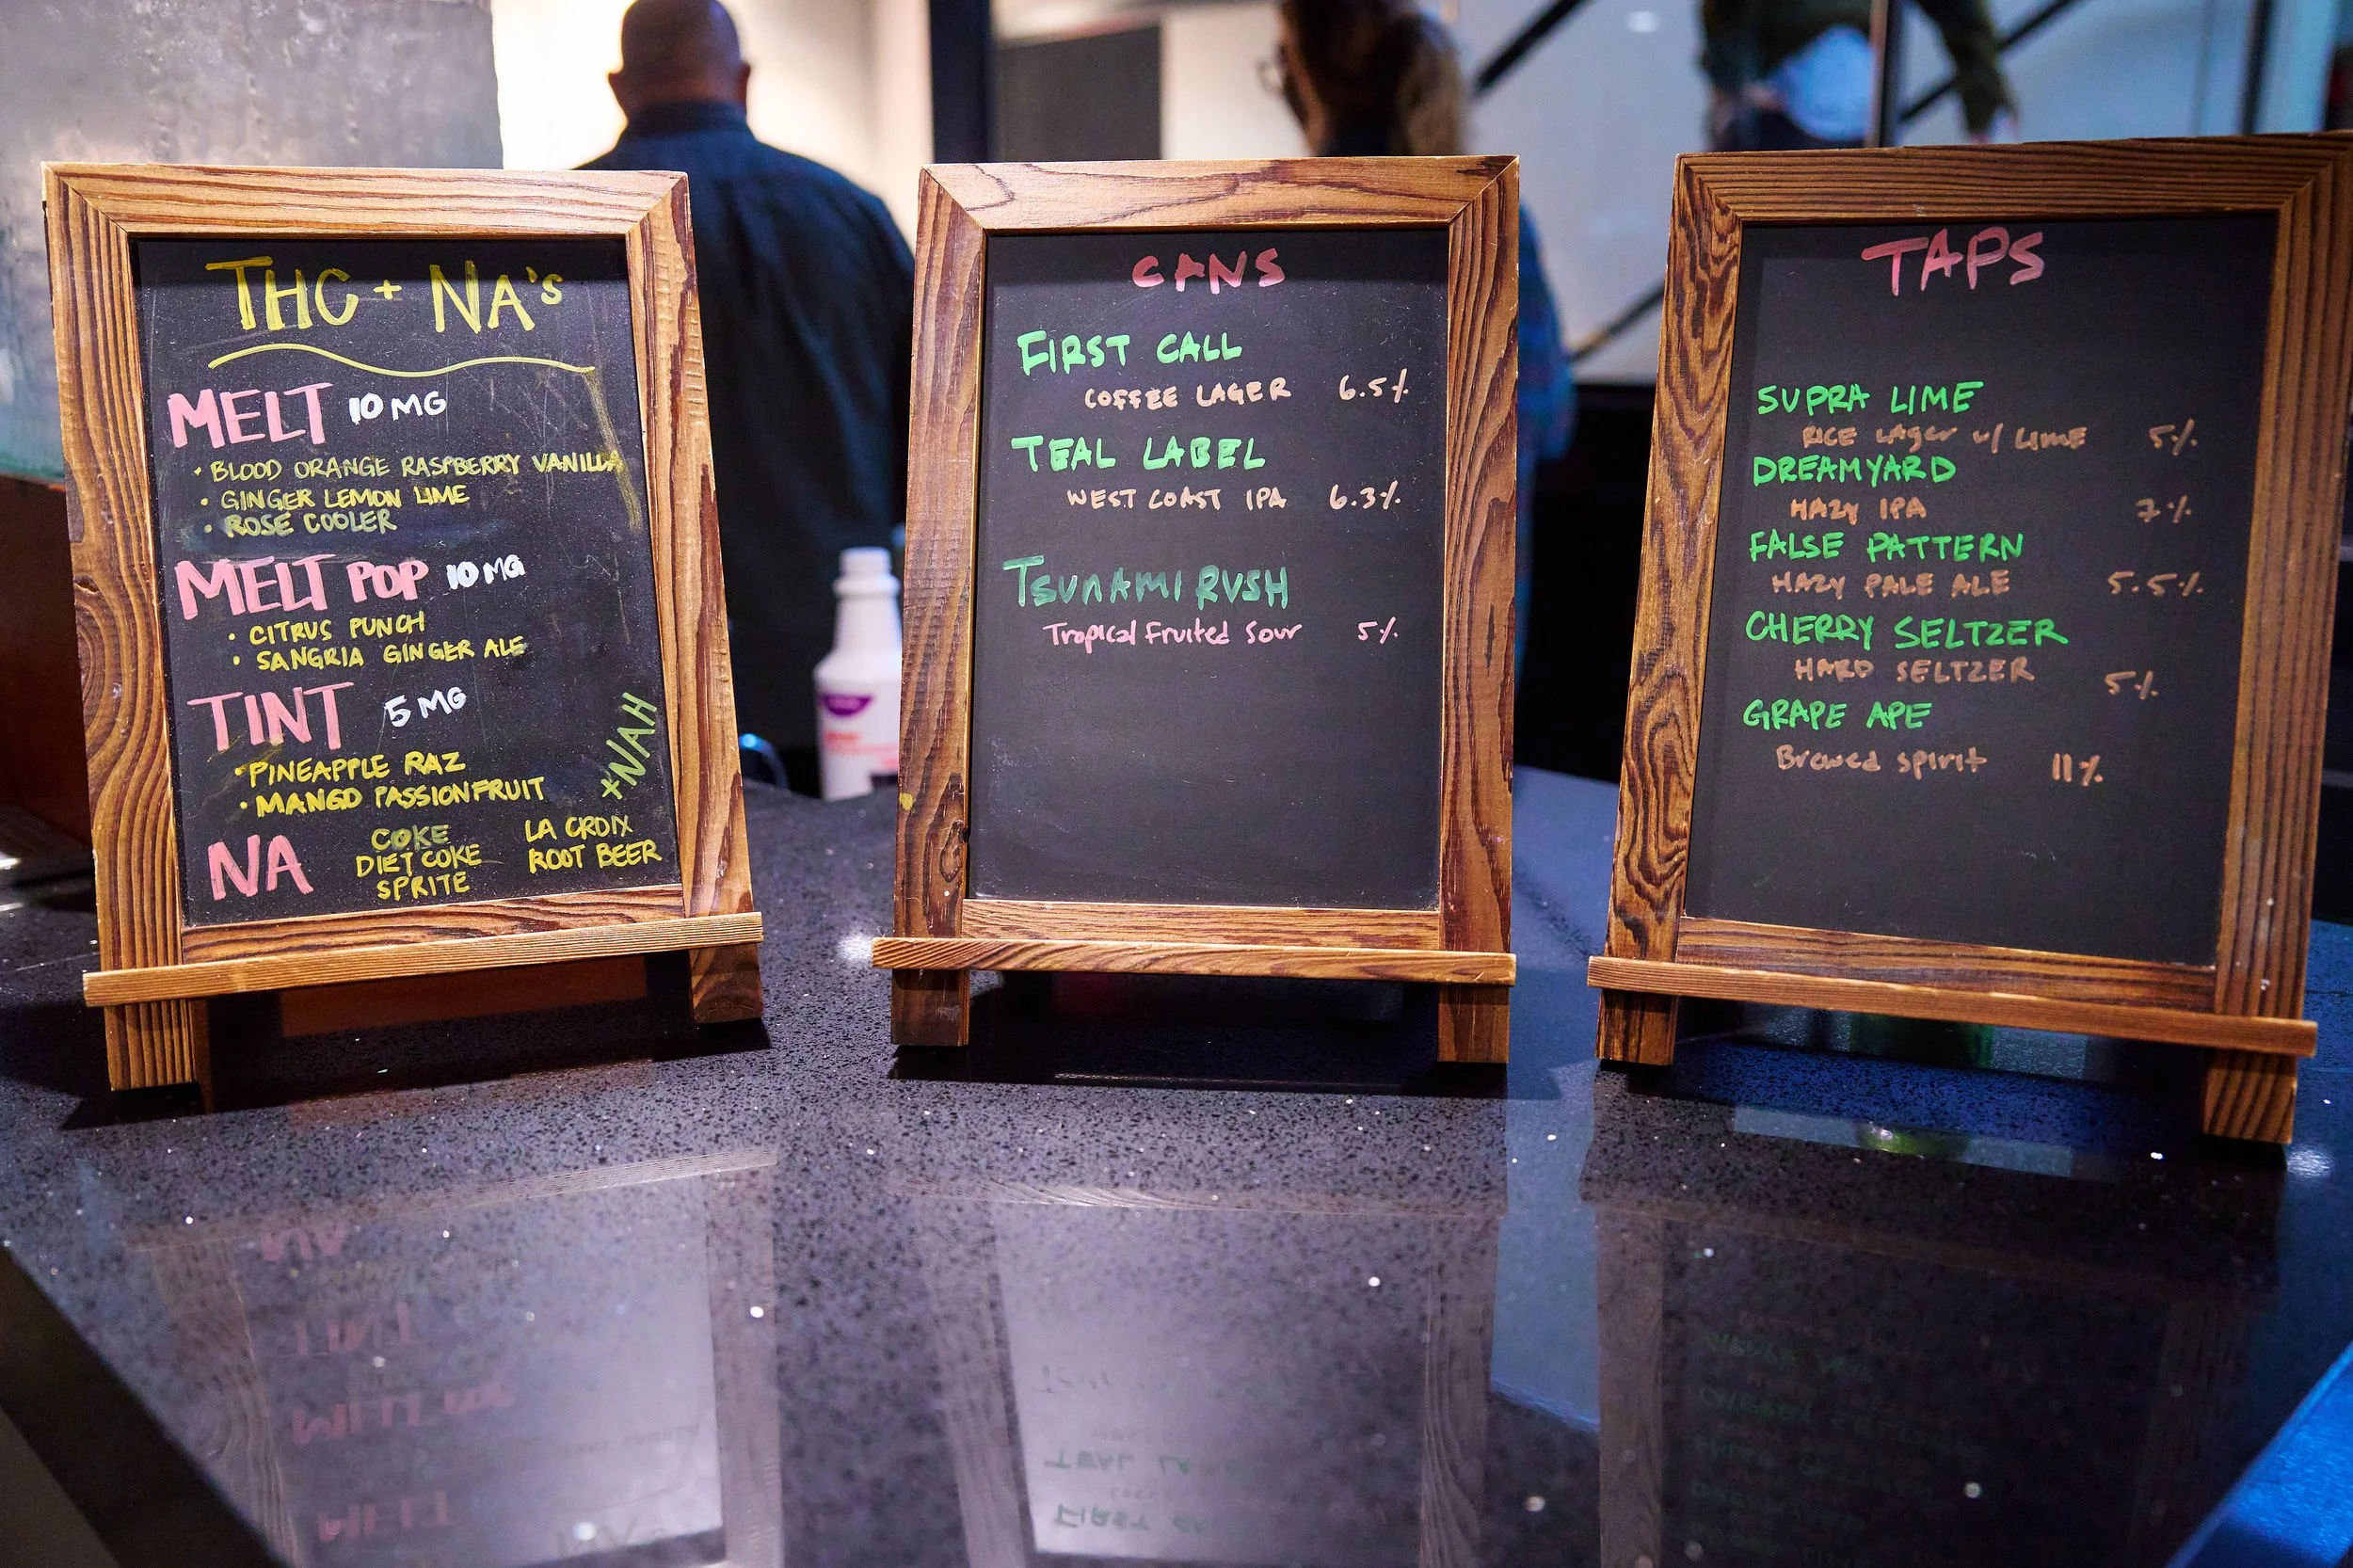 THC + NA's
MELT 10 MG
• BLOOD ORANGE RASPBERRY VANILLA
• GINGER LEMON LIME
• ROSE COOLER
MELT POP 10 MG
• CITRUS PUNCH
• SANGRIA GINGER ALE
TINT 5 MG
• PINEAPPLE RAZ
• MANGO PASSIONFRUIT
+NAH
NA
COKE
DIET COKE
SPRITE
LA CROIX
ROOT BEER
CANS
FIRST CALL
COFFEE LAGER 6.5%
TEAL LABEL
WEST COAST IPA 6.3%
TSUNAMI RUSH
Tropical Fruited Sour 5%
TAPS
SUPRA LIME
RICE LAGer w/ LIME 5%
DREAMYARD
HAZY IPA 7%
FALSE PATTERN
HAZY PALE ALE 5.5%
CHERRY SELTZER
HARD SELTZER 5%
GRAPE APE
Brewed spirit 11%